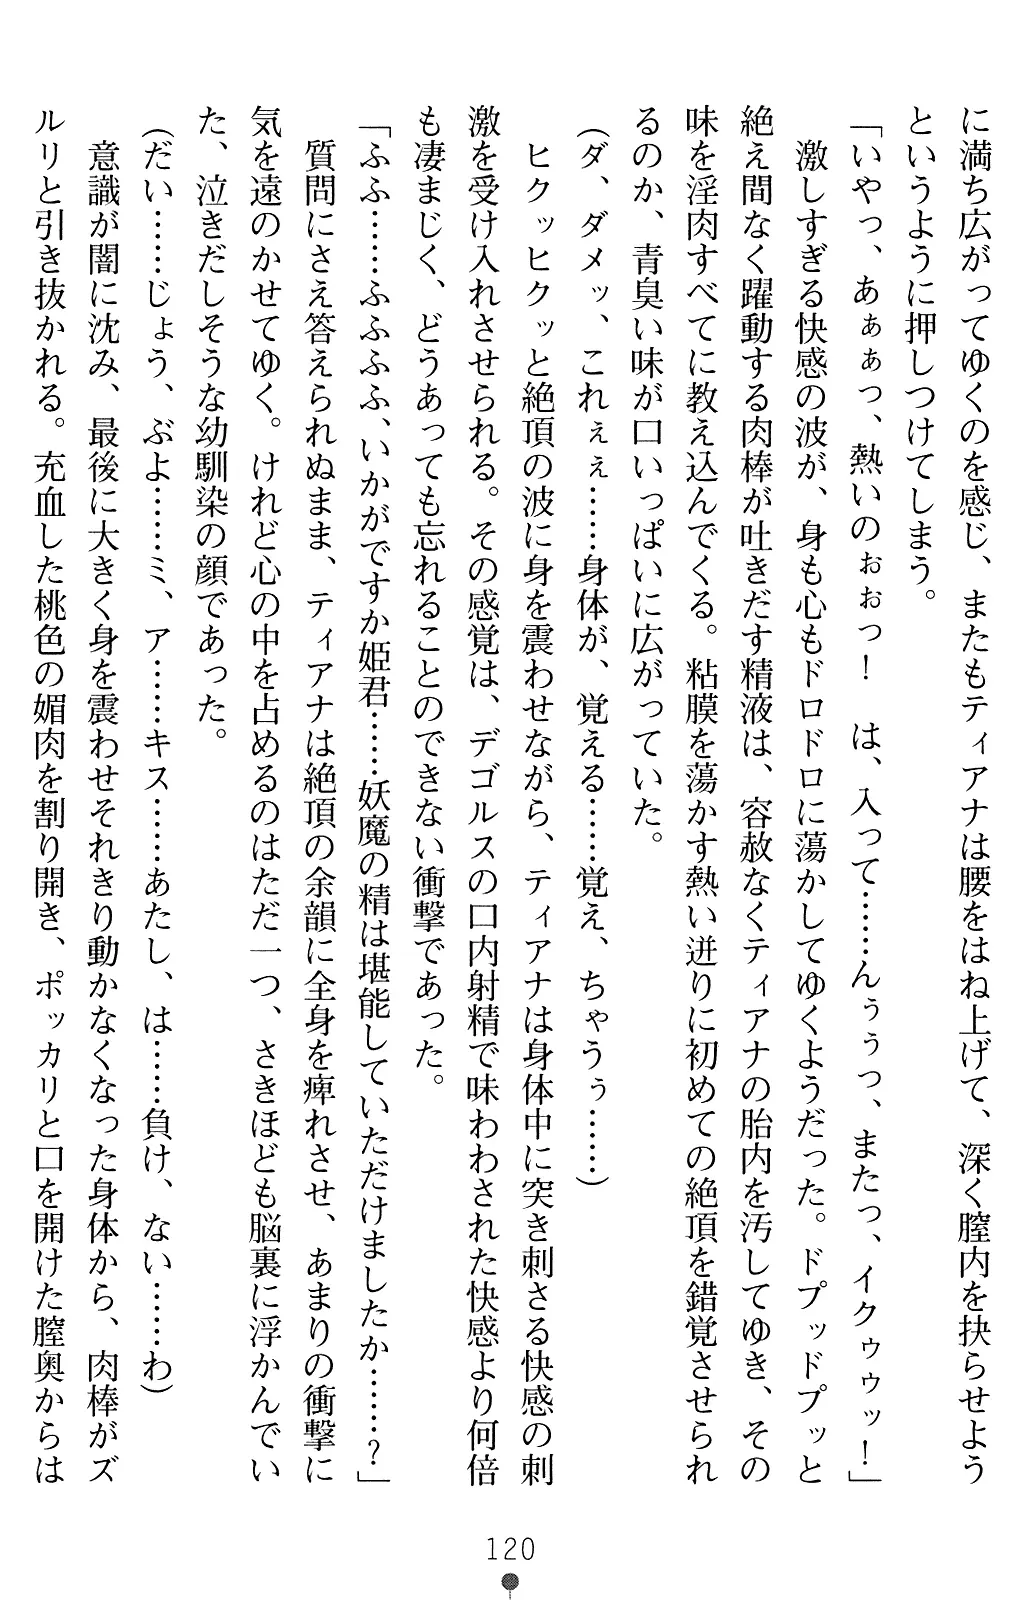 に満ち広がってゆくのを感じ、またもティアナは腰をはね上げて、深く膣内を抉らせよう
というように押しつけてしまう。
「いやっ、あぁぁっ、熱いのぉぉっ！　は、入って………んぅぅっ、またっ、イクゥゥッ！」
激しすぎる快感の波が、身も心もドロドロに蕩かしてゆくようだった。ドプッドプッと
絶え間なく躍動する肉棒が吐きだす精液は、容赦なくティアナの胎内を汚してゆき、その
味を淫肉すべてに教え込んでくる。粘膜を蕩かす熱い迸りに初めての絶頂を錯覚させられ
るのか、青臭い味が口いっぱいに広がっていた。
（ダ、ダメッ、これぇぇ……身体が、覚える……覚え、ちゃうぅ……）
ヒクッヒクッと絶頂の波に身を震わせながら、ティアナは身体中に突き刺さる快感の刺
激を受け入れさせられる。その感覚は、デゴルスの口内射精で味わわされた快感より何倍
も凄まじく、どうあっても忘れることのできない衝撃であった。
「ふふ……ふふふふ、いかがですか姫君……妖魔の精は堪能していただけましたか……？」
質問にさえ答えられぬまま、ティアナは絶頂の余韻に全身を痺れさせ、あまりの衝撃に
気を遠のかせてゆく。けれど心の中を占めるのはただ一つ、さきほども脳裏に浮かんでい
た、泣きだしそうな幼馴染の顔であった。
（だい……じょう、ぶよ……ミ、ア……キス……あたし、は……負け、ない……わ）
意識が闇に沈み、最後に大きく身を震わせそれきり動かなくなった身体から、肉棒がズ
ルリと引き抜かれる。充血した桃色の媚肉を割り開き、ポッカリと口を開けた膣奥からは
120